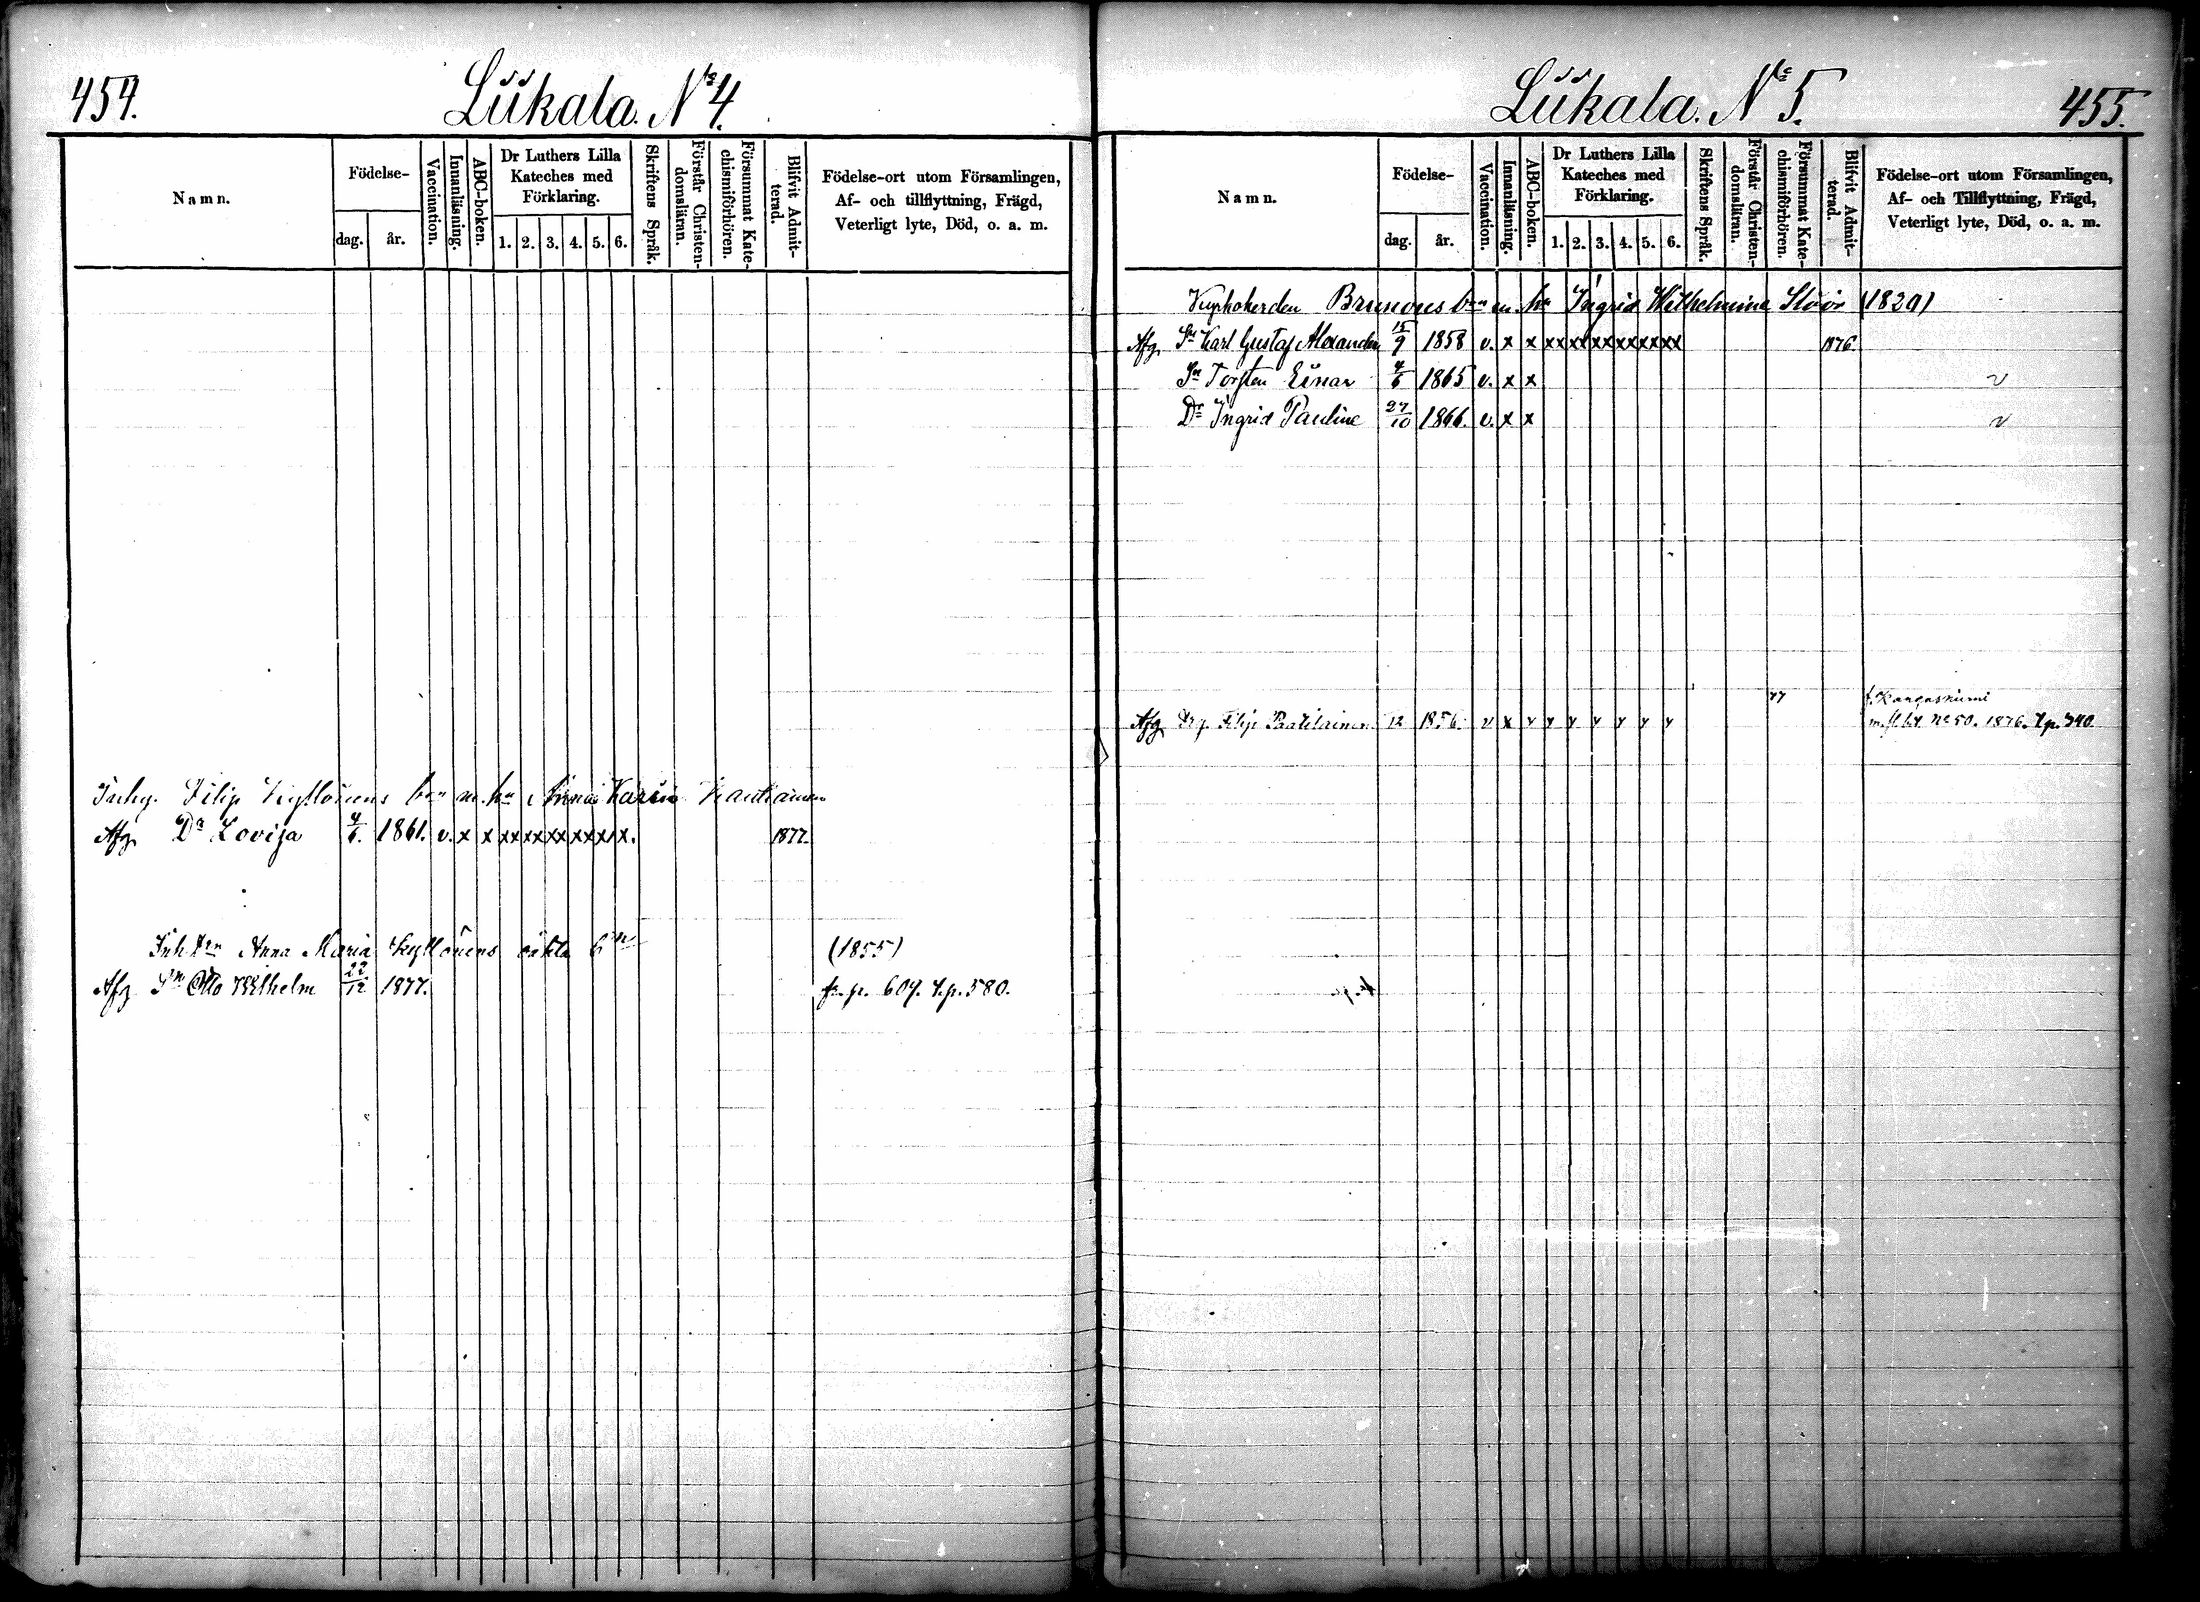 454.
Liikala. No 4.
Namn.
Födelse-
dag.
år.
Vaccination.
Innanläsning.
ABC-boken.
Dr Luthers Lilla
Kateches med
Förklaring.
1. 2. 3. 4. 5. 6.
Skriftens Språk.
Förstår Christen-
domsläran.
Försummat Kate-
chismiförhören.
Blifvit Admit-
terad.
Födelse-ort utom Församlingen,
Af- och tillflyttning, Frägd,
Veterligt lyte, Död, o. a. m.
Filip bn m. hu Anna Karin
Afg Dr Lovisa 4/6. 1861. v. x x xx xx xx xx xx x. 1877.
Anna Maria oäkta (1855)
Afg Sn Otto Wilhelm 22/12 1877. fr. p. 607. t.p. 580.
455.
Liikala. No 5.
Namn.
Födelse-
dag.
år.
Vaccination.
Innanläsning.
ABC-boken.
Dr Luthers Lilla
Kateches med
Förklaring.
1. 2. 3. 4. 5. 6.
Skriftens Språk.
Förstår Christen-
domsläran.
Försummat Kate-
chismiförhören.
Blifvit Admit-
terad.
Födelse-ort utom Församlingen,
Af- och Tillflyttning, Frägd,
Veterligt lyte, Död, o. a. m.
bn m. hu Ingrid Wilhelmina (1820)
Afg Sn Karl Gustaf Alexander 15/9 1858 v. x x xx xx xx xx xx xx 1876.
Sn Torsten Einar 4/6 1865 v. x x v
Dr Ingrid Pauline 27/10 1866. v. x x v
77 f. Kangasniemi
Afg Filip 12 1856. v x v v v v v v v No 50. 1876. t.p. 340